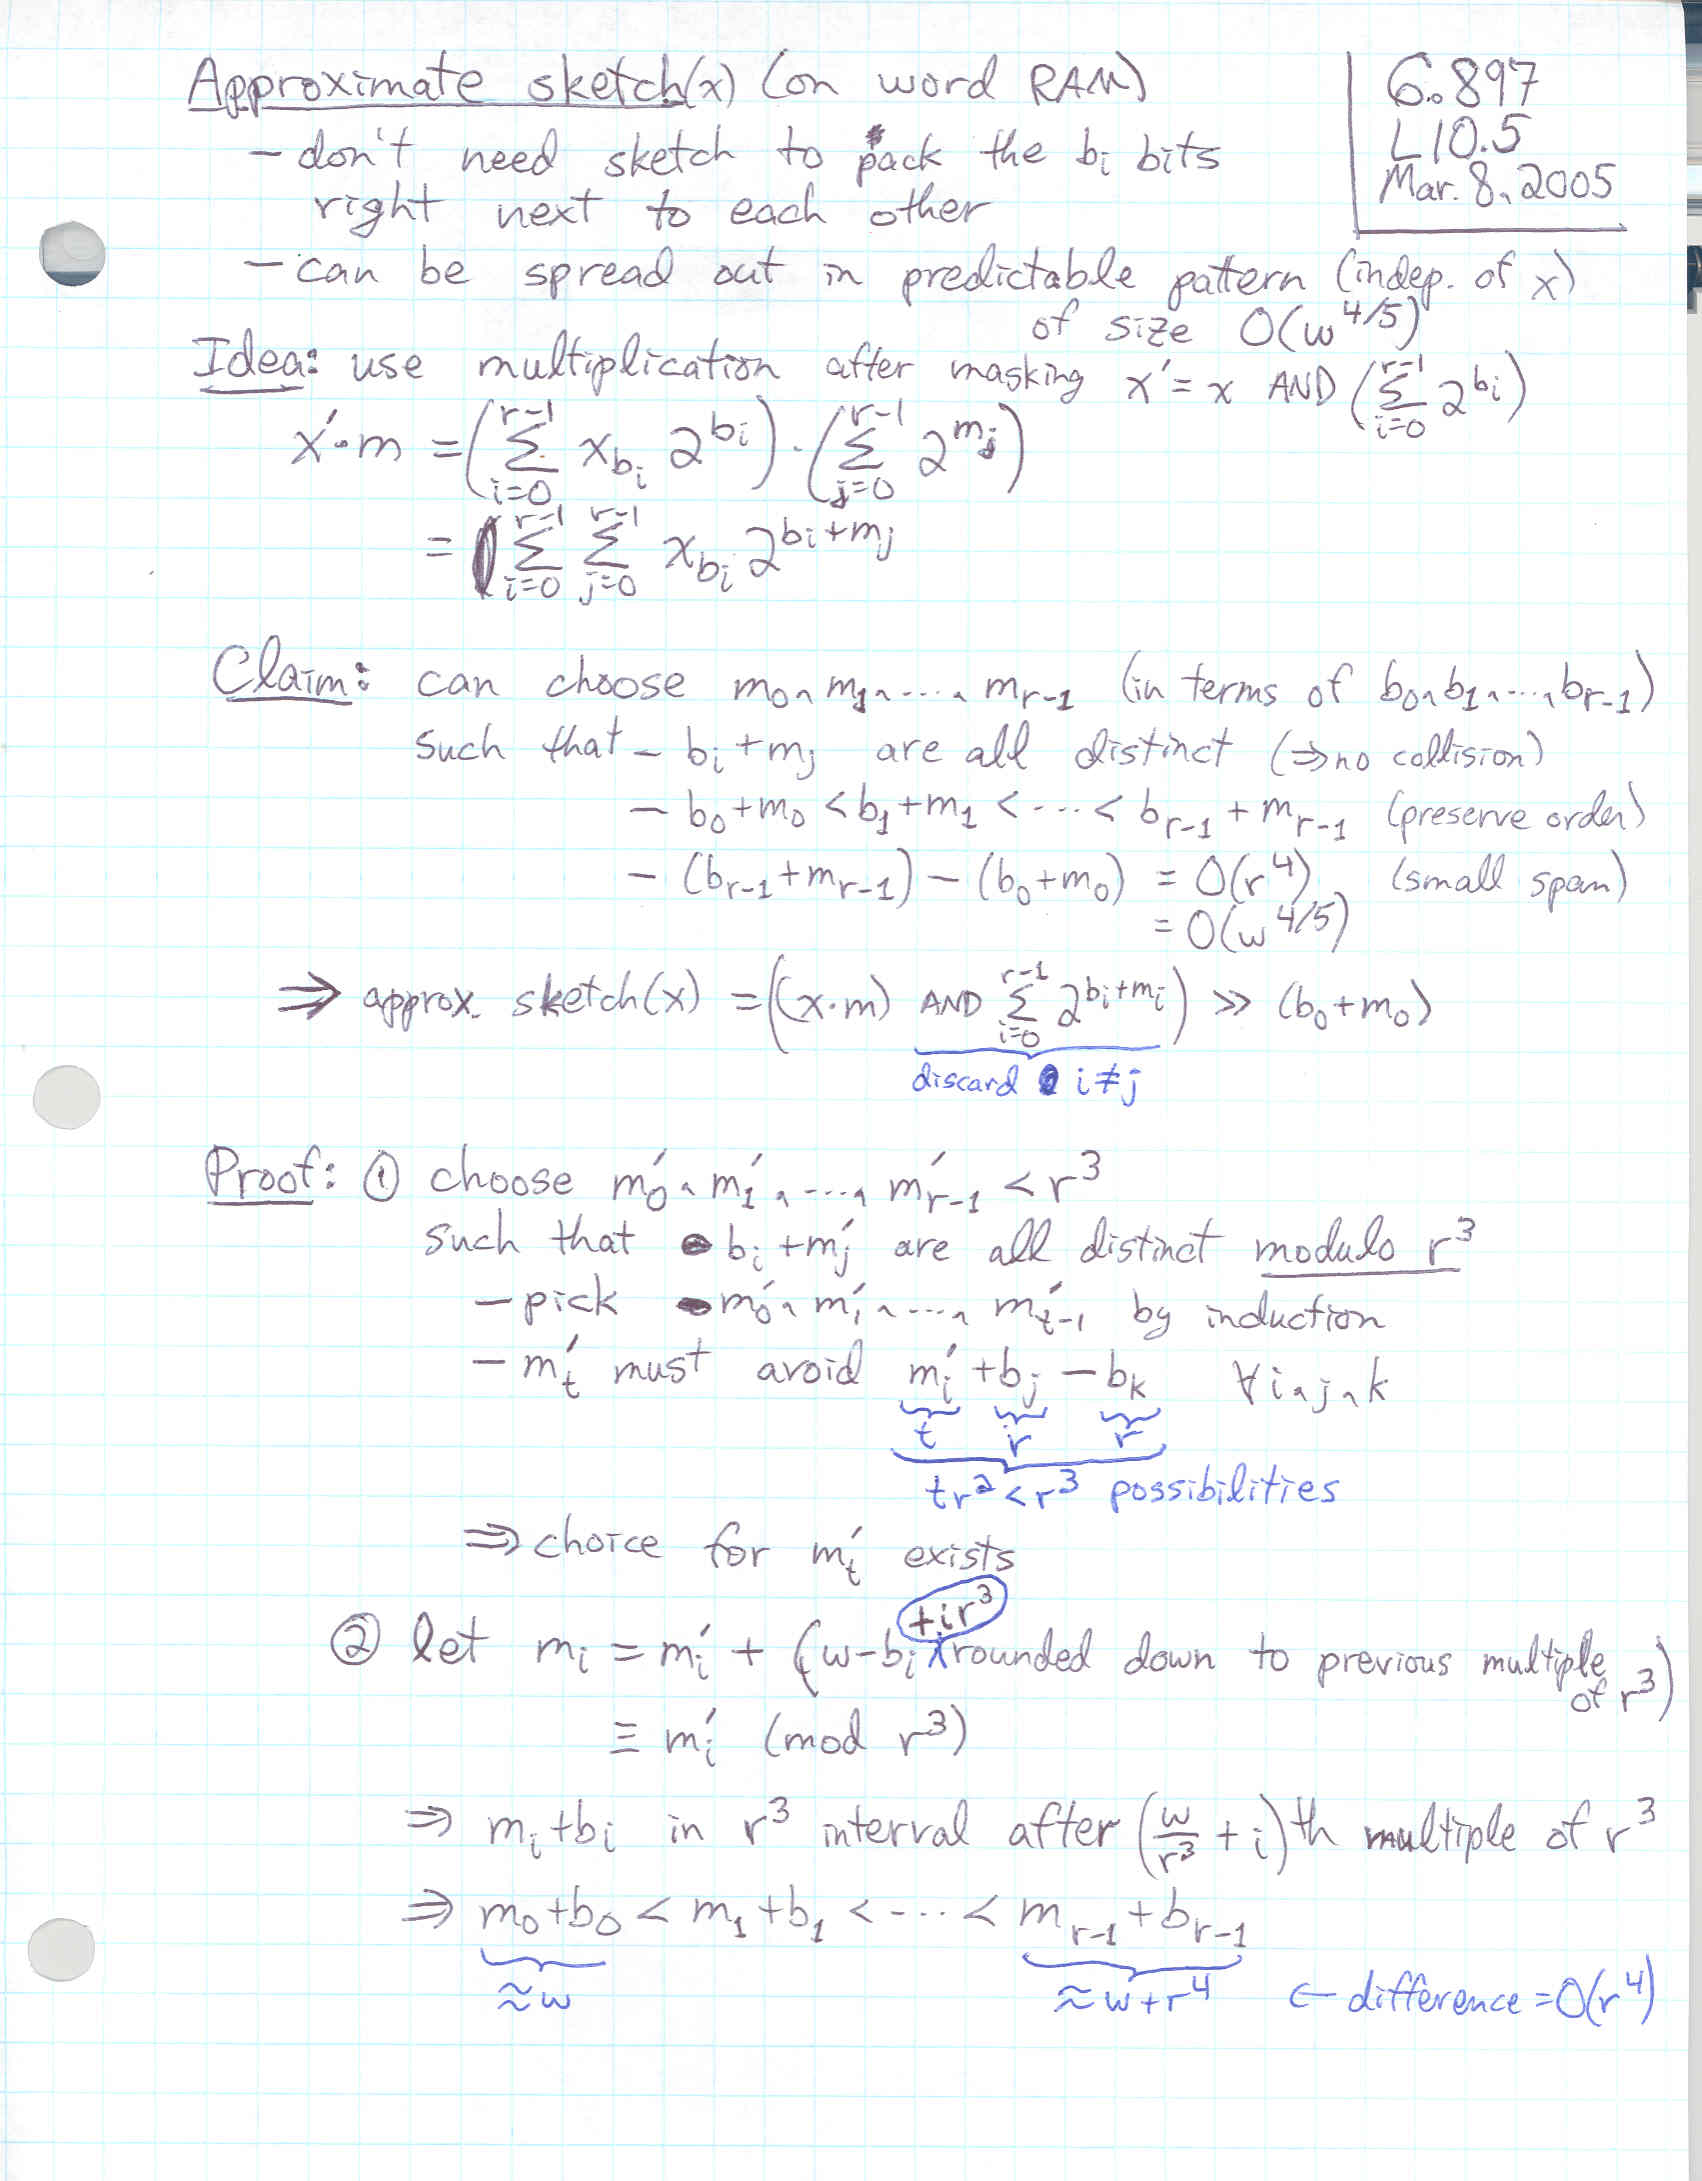 Approximate sketch(x) (on word RAM)
6.897
L10.5
Mar. 8, 2005
– don't need sketch to pack the bᵢ bits
right next to each other
– can be spread out in predictable pattern (indep. of x)
of size O(w^{4/5})
Idea: use multiplication after masking x' = x AND (∑_{i=0}^{r-1} 2^{bᵢ})
x'·m = (∑_{i=0}^{r-1} x_{bᵢ} 2^{bᵢ}) · (∑_{j=0}^{r-1} 2^{mⱼ})
= ∑_{i=0}^{r-1} ∑_{j=0}^{r-1} x_{bᵢ} 2^{bᵢ+mⱼ}
Claim: can choose m₀, m₁, ..., m_{r-1} (in terms of b₀, b₁, ..., b_{r-1})
such that – bᵢ + mⱼ are all distinct (⇒ no collision)
– b₀ + m₀ < b₁ + m₁ < ... < b_{r-1} + m_{r-1} (preserve order)
– (b_{r-1} + m_{r-1}) – (b₀ + m₀) = O(r⁴) (small span)
= O(w^{4/5})
⇒ approx. sketch(x) = ((x·m) AND ∑_{i=0}^{r-1} 2^{bᵢ+mᵢ}) >> (b₀ + m₀)
discard i≠j
Proof: ① choose m₀', m₁', ..., m'_{r-1} < r³
such that bᵢ + mⱼ' are all distinct modulo r³
– pick m₀', m₁', ..., m'_{t-1} by induction
– m'_t must avoid mᵢ' + bⱼ – b_k ∀ i, j, k
t r r
tr² < r³ possibilities
⇒ choice for m'_t exists
+ir³
② let mᵢ = mᵢ' + (w – bᵢ rounded down to previous multiple
of r³)
≡ mᵢ' (mod r³)
⇒ mᵢ + bᵢ in r³ interval after (w/r³ + i)th multiple of r³
⇒ m₀ + b₀ < m₁ + b₁ < ... < m_{r-1} + b_{r-1}
≈ w ≈ w + r⁴ ← difference = O(r⁴)